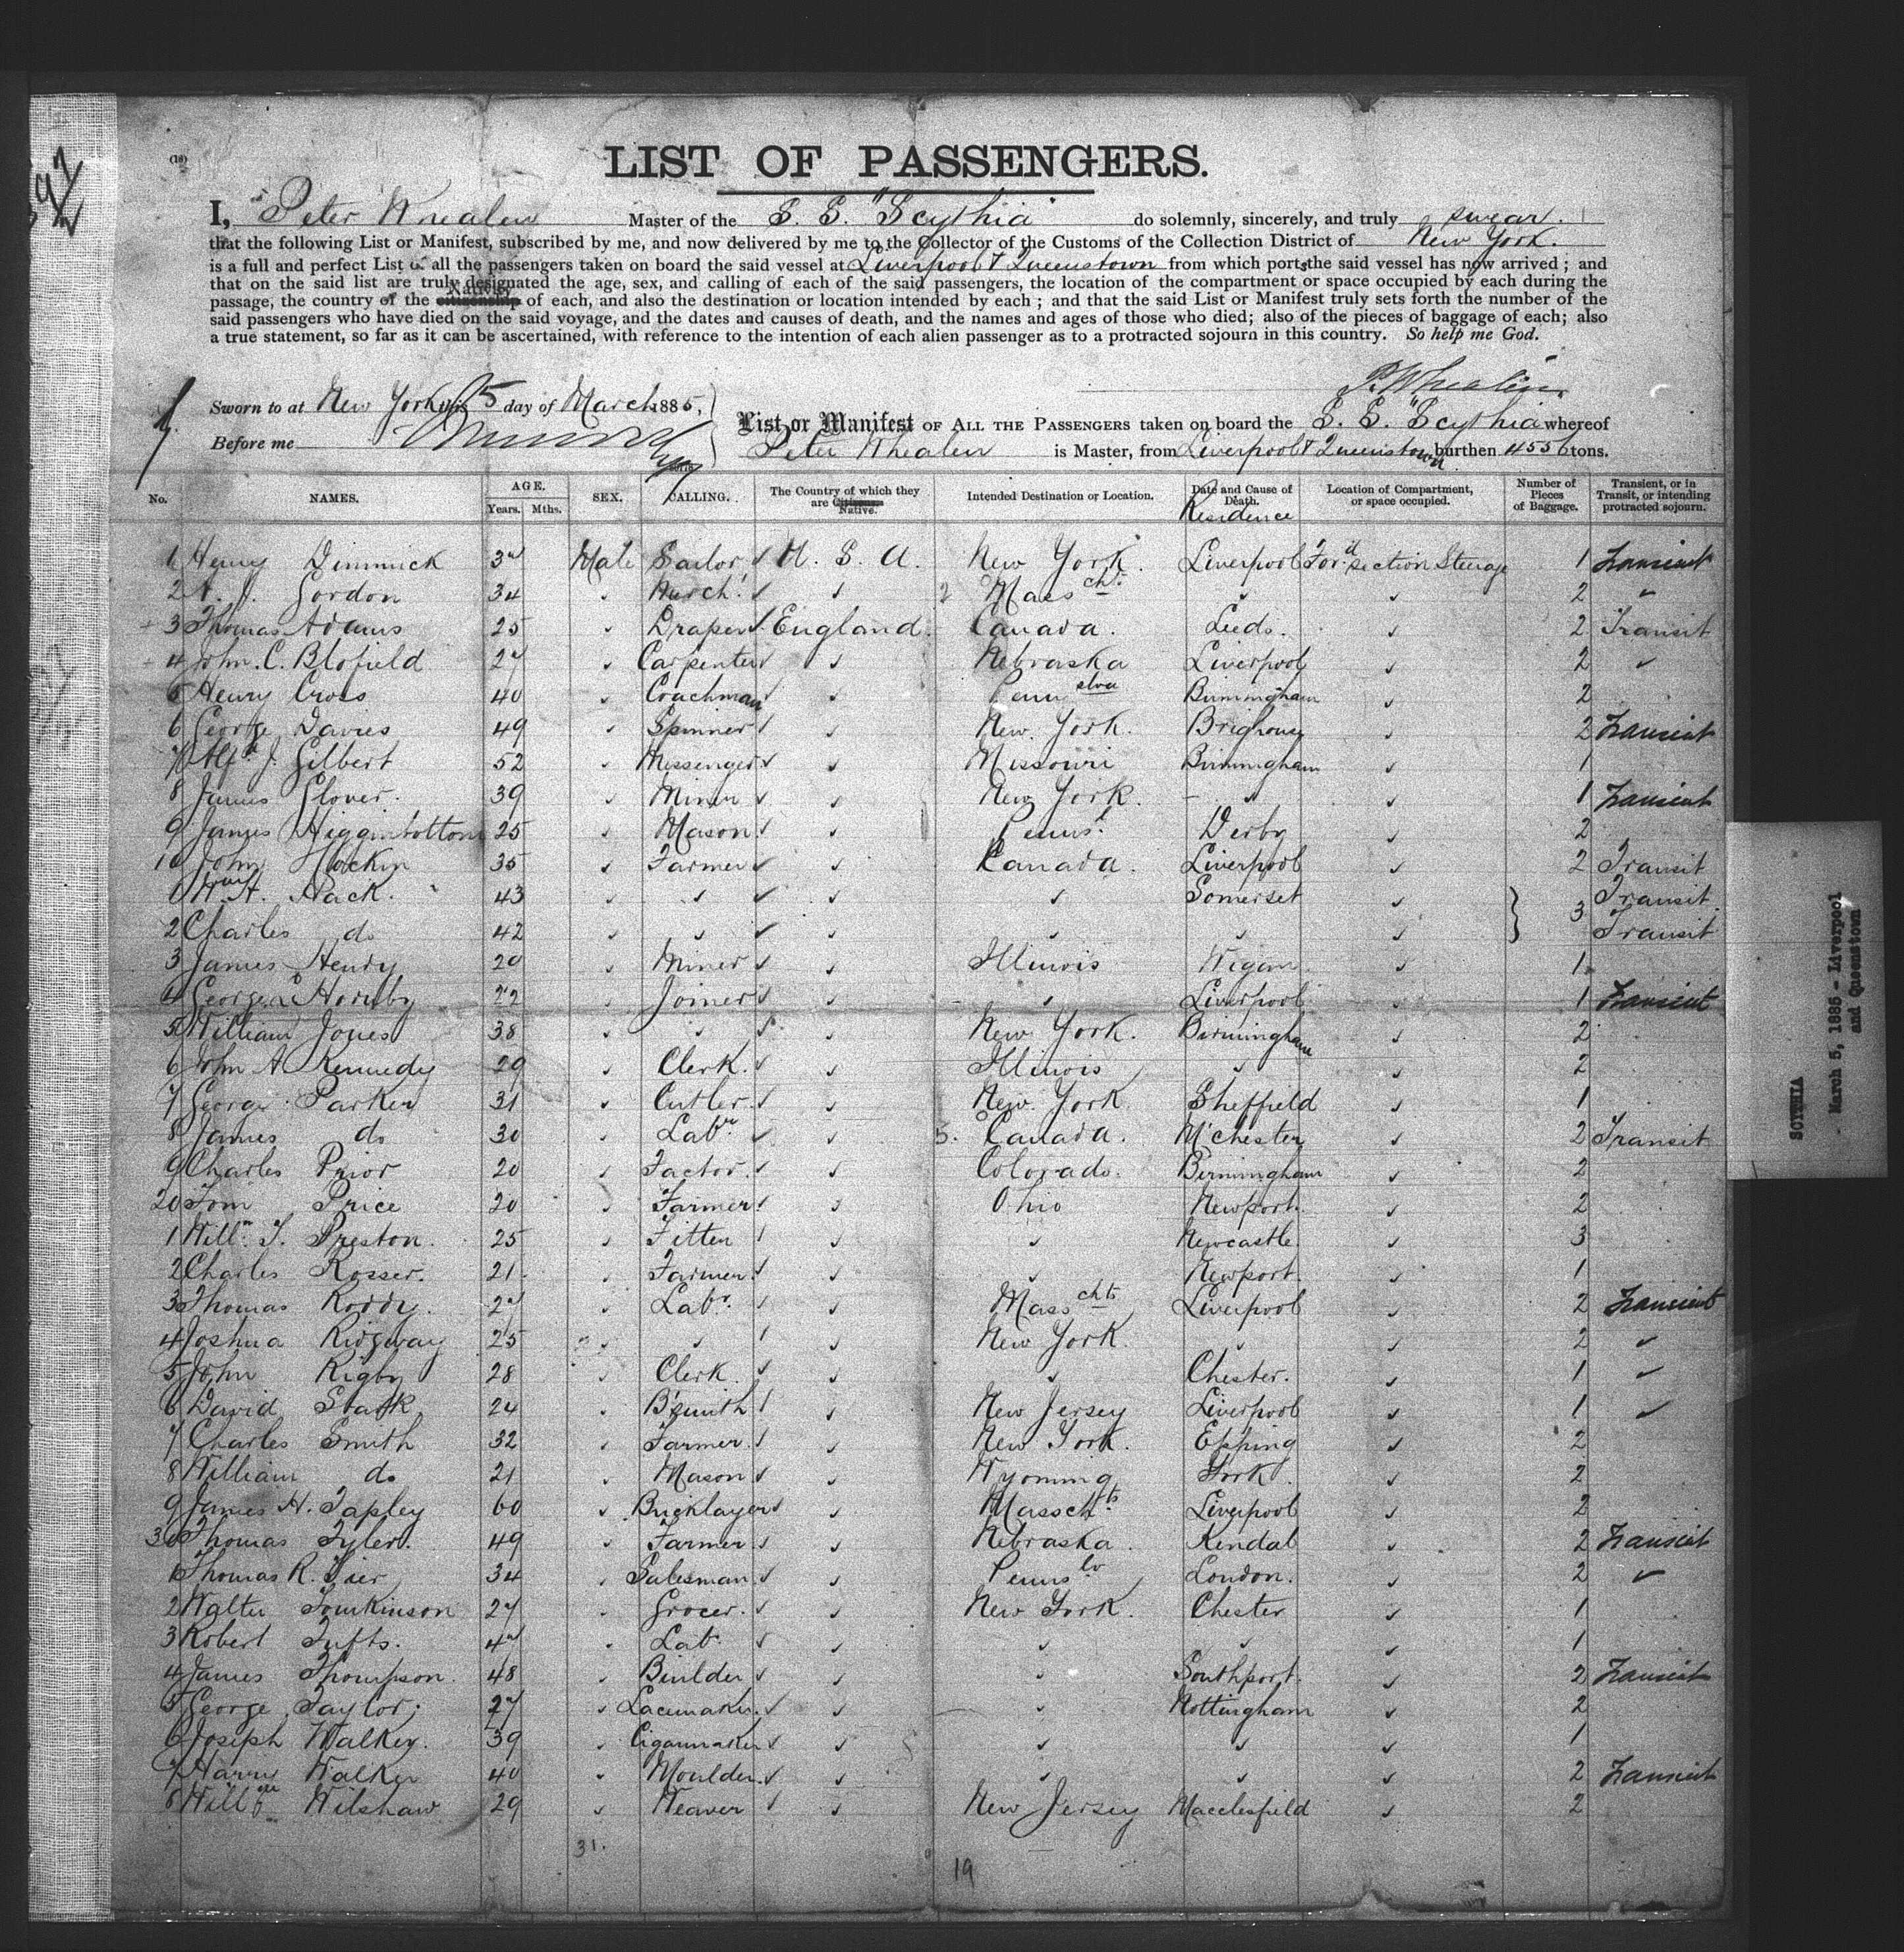 (18)
LIST OF PASSENGERS.
I, Peter Whealen Master of the S. S. "Scythia" do solemnly, sincerely, and truly swear.
that the following List or Manifest, subscribed by me, and now delivered by me to the Collector of the Customs of the Collection District of New York.
is a full and perfect List of all the passengers taken on board the said vessel at Liverpool & Queenstown from which ports the said vessel has now arrived; and
that on the said list are truly designated the age, sex, and calling of each of the said passengers, the location of the compartment or space occupied by each during the
passage, the country of the citizenship of each, and also the destination or location intended by each; and that the said List or Manifest truly sets forth the number of the
said passengers who have died on the said voyage, and the dates and causes of death, and the names and ages of those who died; also of the pieces of baggage of each; also
a true statement, so far as it can be ascertained, with reference to the intention of each alien passenger as to a protracted sojourn in this country. So help me God.
P. Whealen
Sworn to at New York this 5 day of March 1885,
Before me
List or Manifest OF ALL THE PASSENGERS taken on board the S. S. "Scythia whereof
Peter Whealen is Master, from Liverpool & Queenstown burthen 4556 tons.
No. NAMES. AGE. Years. Mths. SEX. CALLING. The Country of which they are Citizens. Native. Intended Destination or Location. Date and Cause of Death. Residence Location of Compartment, or space occupied. Number of Pieces of Baggage. Transient, or in Transit, or intending protracted sojourn.
1 Henry Dimmick Male Sailor U. S. A. New York. Liverpool For'd section Steerage 1 Transient
2 Gordon 34 Merch't 2 Mass chts 2
3 Thomas Adams 25 Draper England Canada. Leeds. 2 Transit
4 John. C. Blofield 27 Carpenter Nebraska Liverpool 2
5 Henry Cross 40 Coachman Penn slva Birmingham 2
6 George Davies 49 Spinner New York. Brighouse 2 Transient
7 Alfd J. Gilbert 52 Messenger Missouri Birmingham 1
8 James Glover. 39 Miner New York. 1 Transient
9 James Higginbottom 25 Mason Penns. Derby 2
10 John Hockin 35 Farmer Canada. Liverpool 2 Transit
1 Hack. 43 Somerset Transit
2 Charles do 42 3 Transit
3 James Henry 20 Miner Illinois Wigan 1
4 George Hornby 22 Joiner Liverpool 1 Transient
5 William Jones 38 New York. Birmingham 2
6 John A Kennedy 29 Clerk. Illinois 2
7 George Parker 31 Cutler. New York Sheffield 1
8 James do 30 Labr 5. Canada. M'chester 2 Transit
9 Charles Prior 20 Factor. Colorado. Birmingham 2
20 Tom Price 20 Farmer Ohio Newport. 2
1 Willm T. Preston. 25 Fitter Newcastle. 3
2 Charles Rosser. 21 Farmer Newport. 1
3 Thomas Roddy. 27 Labr. Mass chts Liverpool 2 Transient
4 Joshua Ridgway 25 New York 2
5 John Rigby 28 Clerk. Chester. 1
6 David Stark 24 B'smith New Jersey Liverpool 1
7 Charles Smith 32 Farmer. New York. Epping 2
8 William do 21 Mason Wyoming York 2
9 James H. Tapley 60 Bricklayer Masscts Liverpool 2
30 Thomas Tyler. 49 Farmer Nebraska. Kendal 2 Transient
1 Thomas R. Tier 34 Salesman Penns lv London. 2
2 Walter Tomkinson 27 Grocer. New York. Chester 1
3 Robert Tufts. Lab. 1
4 James Thompson. 48 Builder Southport. 2 Transient
5 George Taylor. 27 Lacemaker. Nottingham 2
6 Joseph Walker. 39 Cigarmaker 1
7 Harry Walker 40 Moulder. 2 Transient
8 Willm Wilshaw 29 Weaver New Jersey Macclesfield 2
31.
19
SCYTHIA
- March 5, 1885 - Liverpool
and Queenstown